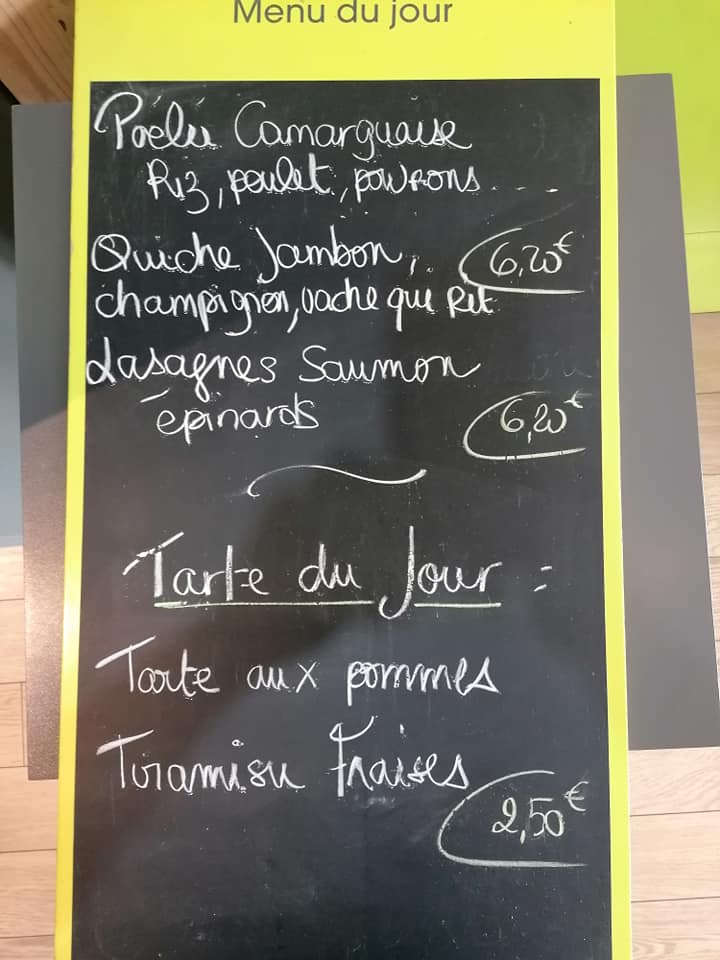 Menu du jour
Poêlée Camarguaise
Riz, poulet, poivrons....
Quiche Jambon, 6,20€
champignon, vache qui Rit
Lasagnes Saumon
épinards 6,20€
Tarte du Jour :
Tarte aux pommes
Tiramisu Fraises
2,50€